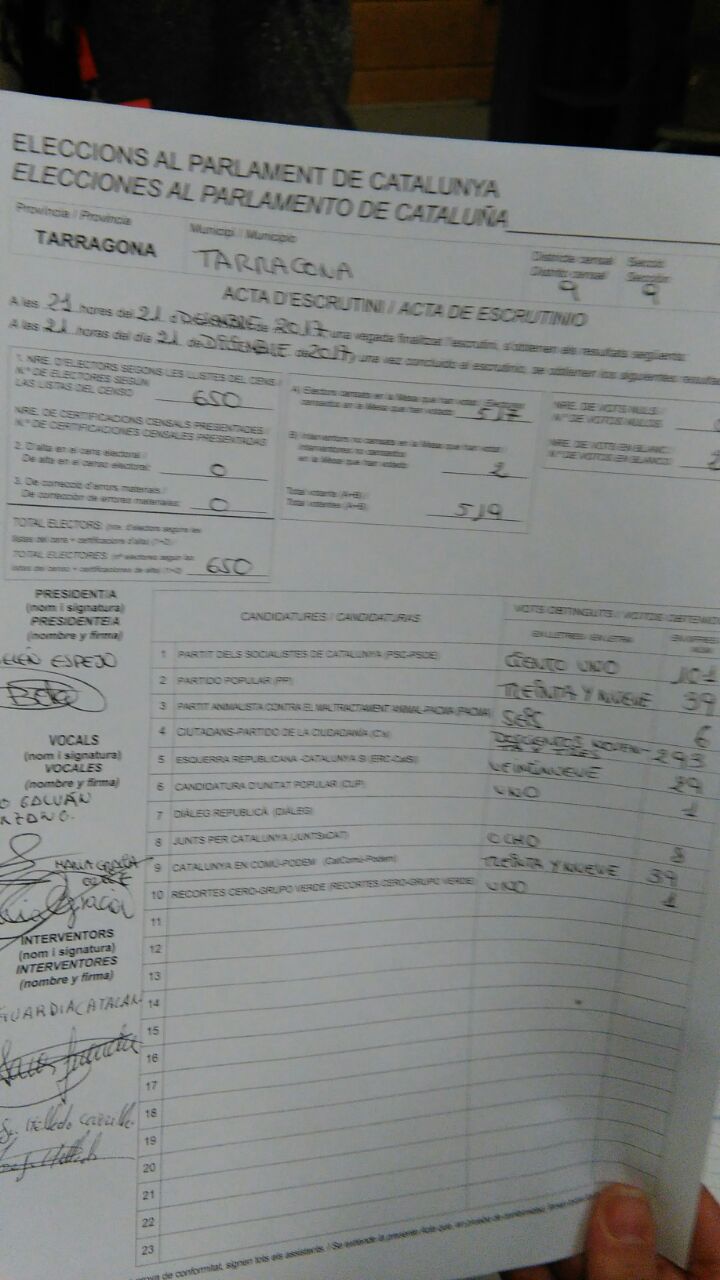 ELECCIONS AL PARLAMENT DE CATALUNYA
ELECCIONES AL PARLAMENTO DE CATALUÑA
Província / Provincia
TARRAGONA
Municipi / Municipio
TARRAGONA
Districte censal
Distrito censal
9
Secció
Sección
9
ACTA D'ESCRUTINI / ACTA DE ESCRUTINIO
A les 21 hores del 21 de 2017 una vegada finalitzat l'escrutini, s'obtenen els resultats següents:
A las 21 horas del día 21 de de 2017, y una vez concluido el escrutinio, se obtienen los siguientes
1. NRE. D'ELECTORS SEGONS LES LLISTES DEL CENS /
N.º DE ELECTORES SEGÚN
LAS LISTAS DEL CENSO 650
NRE. DE CERTIFICACIONS CENSALS PRESENTADES /
N.º DE CERTIFICACIONES CENSALES PRESENTADAS
2. D'alta en el cens electoral /
De alta en el censo electoral: 0
3. De correcció d'errors materials /
De corrección de errores materiales: 0
TOTAL ELECTORS: (nre. d'electors segons les
llistes del cens + certificacions d'alta) (1+2) /
TOTAL ELECTORES: (nº electores según las
listas del censo + certificaciones de alta) (1+2) 650
A) Electors censats en la Mesa que han votat / Electores
censados en la Mesa que han votado 517
B) Interventors no censats en la Mesa que han votat /
Interventores no censados
en la Mesa que han votado 2
Total votants (A+B) /
Total votantes (A+B) 519
NRE. DE VOTS NULS /
N.º DE VOTOS NULOS
NRE. DE VOTS EN BLANC /
N.º DE VOTOS EN BLANCO
PRESIDENT/A
(nom i signatura)
PRESIDENTE/A
(nombre y firma)
ESPEJO
VOCALS
(nom i signatura)
VOCALES
(nombre y firma)
GALVÁN
MARIA GRACIA
INTERVENTORS
(nom i signatura)
INTERVENTORES
(nombre y firma)
CANDIDATURES / CANDIDATURAS
VOTS OBTINGUTS / VOTOS
EN LLETRES / EN LETRA
1 PARTIT DELS SOCIALISTES DE CATALUNYA (PSC-PSOE) CIENTO UNO 101
2 PARTIDO POPULAR (PP) TREINTA Y NUEVE 39
3 PARTIT ANIMALISTA CONTRA EL MALTRACTAMENT ANIMAL-PACMA (PACMA) SEIS 6
4 CIUTADANS-PARTIDO DE LA CIUDADANÍA (C's) 293
5 ESQUERRA REPUBLICANA -CATALUNYA SÍ (ERC-CatSí) VEINTINUEVE 29
6 CANDIDATURA D'UNITAT POPULAR (CUP) UNO 1
7 DIÀLEG REPUBLICÀ (DIÀLEG)
8 JUNTS PER CATALUNYA (JUNTSxCAT) OCHO 8
9 CATALUNYA EN COMÚ-PODEM (CatComú-Podem) TREINTA Y NUEVE 39
10 RECORTES CERO-GRUPO VERDE (RECORTES CERO-GRUPO VERDE) UNO 1
11
12
13
14
15
16
17
18
19
20
21
22
23
prova de conformitat, signen tots els assistents. / Se extiende la presente Acta que, en prueba de conformidad,